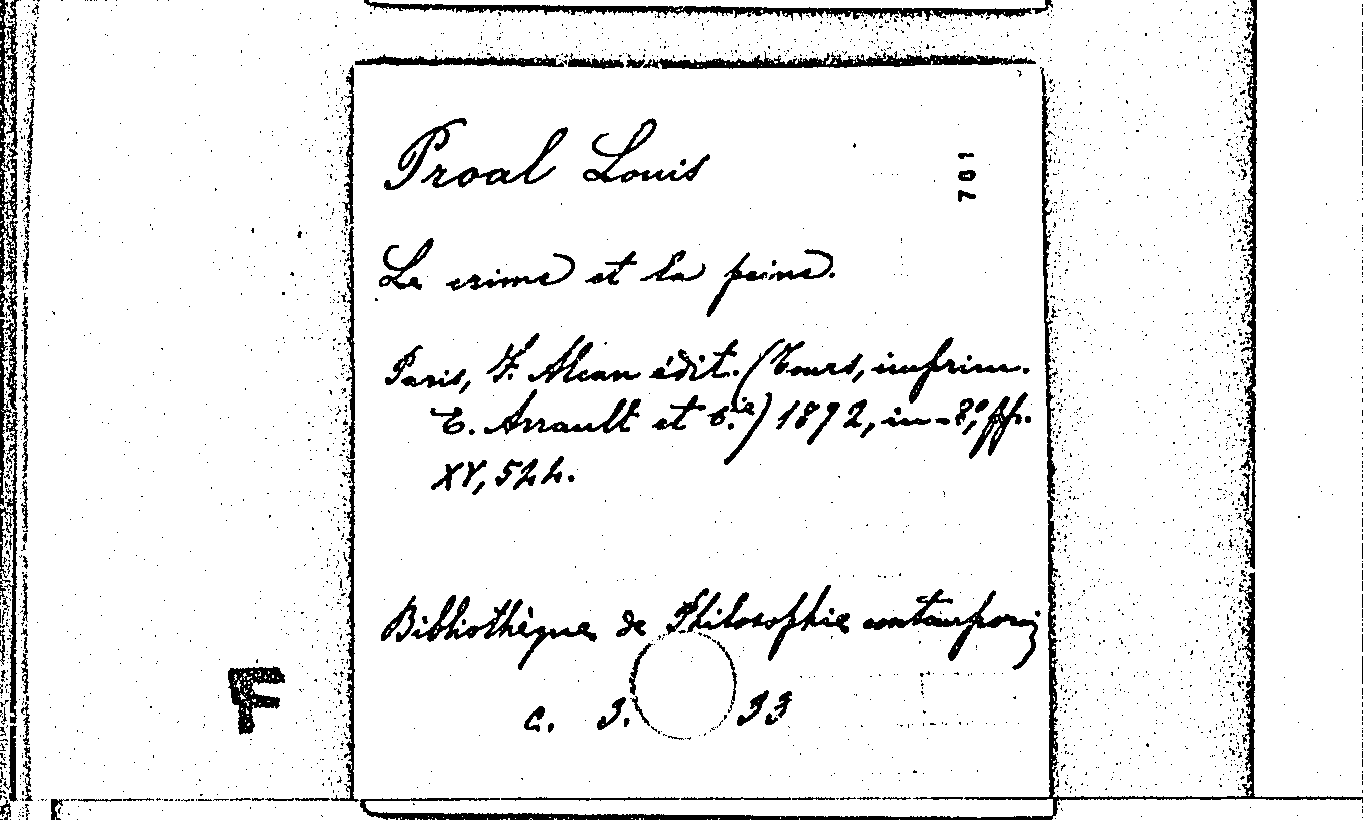 Proal Louis
701
Le crime et la peine.
Paris, F. Alcan édit. (Tours, imprim.
E. Arrault et C.ie) 1892, in-8º, pp.
XV, 544.
Bibliothèque de Philosophie contemporai
F
c. 3. 33